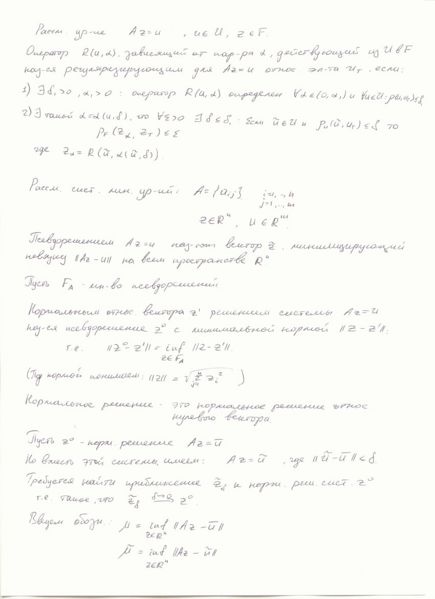 Рассм. ур-ие Az = u , u∈U, z∈F.
Оператор R(u,α), зависящий от пар-ра α, действующий из U в F
наз-ся регуляризирующим для Az=u относ. эл-та u_T, если:
1) ∃ δ₁>0, α₁>0 : оператор R(u,α) определен ∀α∈(0,α₁) и ∀u∈U: ρ(u,u_T)≤δ₁
2) ∃ такой α=α(u,δ), что ∀ε>0 ∃ δ≤δ₁: Если ũ∈U и ρ_U(ũ,u_T)≤δ то
ρ_F(z_α, z_T)≤ε
где z_α = R(ũ, α(ũ,δ)).
Рассм. сист. лин. ур-ий: A={a_ij} i=1,..,n
j=1,..,m
z∈Rⁿ, u∈Rᵐ.
Псевдорешением Az=u наз-ют вектор z, минимизирующий
невязку ||Az-u|| на всем пространстве Rⁿ
Пусть F_A - мн-во псевдорешений
Нормальным относ. вектора z' решением системы Az=u
наз-ся псевдорешение z⁰ с минимальной нормой ||z-z'||
т.е. ||z⁰-z'|| = inf ||z-z'||
z∈F_A
(Под нормой понимаем: ||z|| = √(Σ z_i²))
Нормальное решение - это нормальное решение относ
нулевого вектора
Пусть z⁰ - норм. решение Az=ū
Но вместо этой системы имеем: Az=ũ, где ||ũ-ū||≤δ
Требуется найти приближение z̃_δ к норм. реш. сист. z⁰
т.е такое, что z̃_δ →(δ→0) z⁰
Введем обозн: μ = inf ||Az-ū||
z∈Rⁿ
μ̃ = inf ||Az-ũ||
z∈Rⁿ